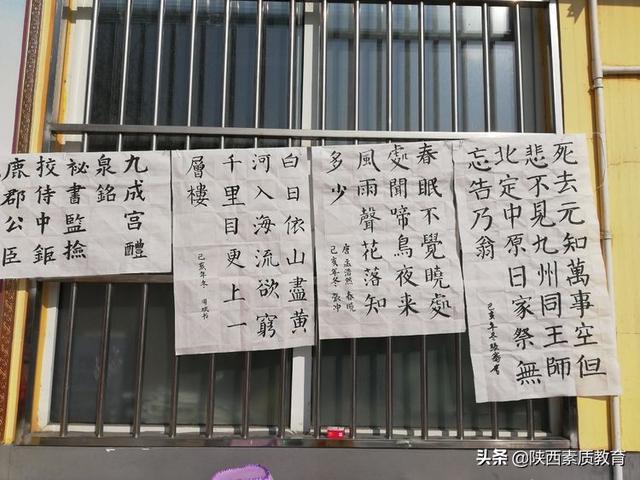 死去元知萬事空但
悲不見九州同王師
北定中原日家祭無
忘告乃翁
己亥年冬
春眠不覺曉處
處聞啼鳥夜来
風雨聲花落知
多少
唐孟浩然 春曉
己亥年冬
白日依山盡黄
河入海流欲窮
千里目更上一
層樓
己亥年冬
九成宮醴
泉銘
祕書監撿
挍侍中鉅
鹿郡公臣
头条 @陕西素质教育